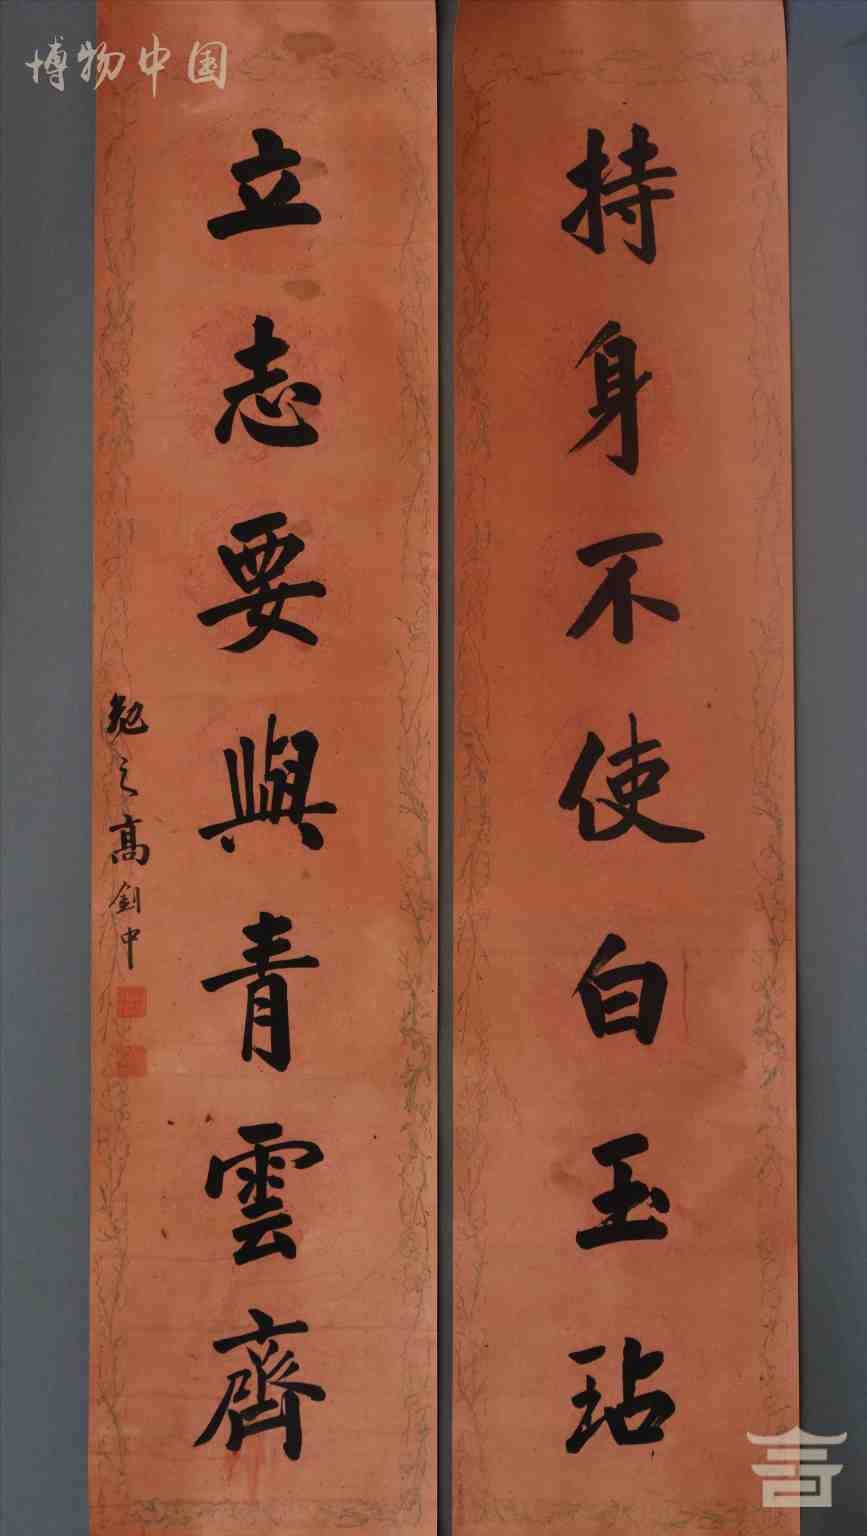 博物中国
持身不使白玉玷
立志要與青雲齊
勉之高劍中